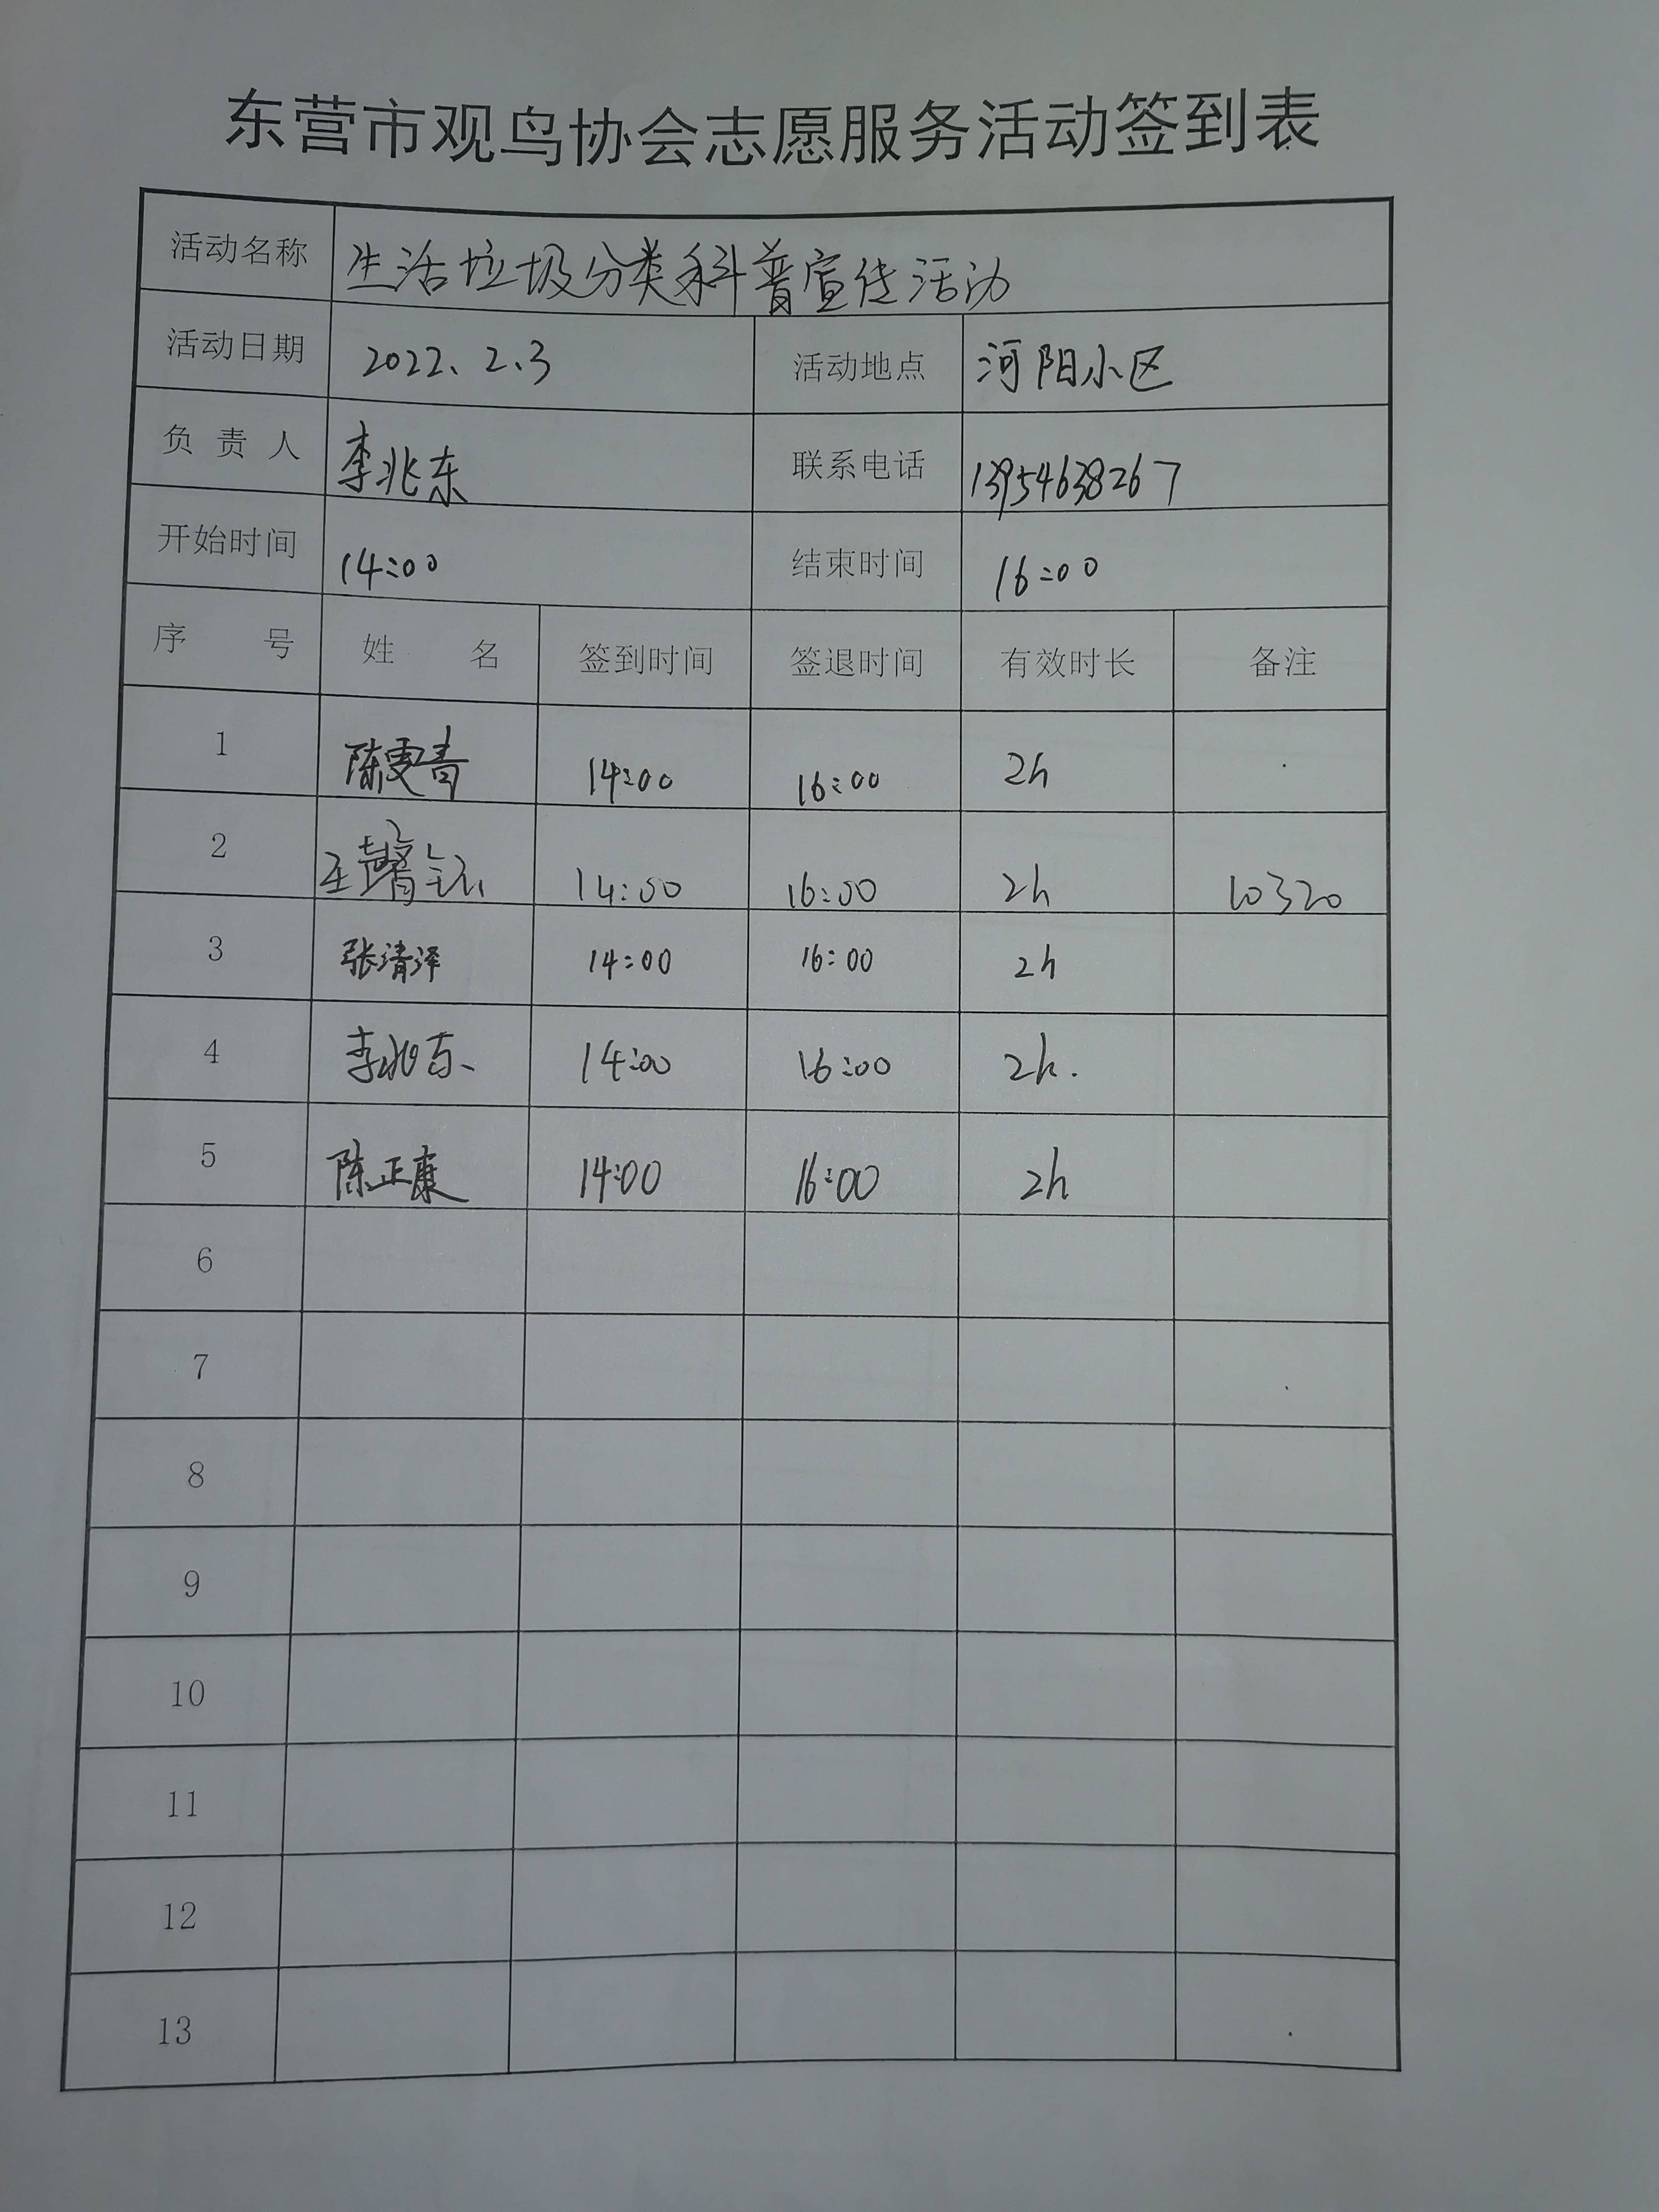 东营市观鸟协会志愿服务活动签到表
活动名称 生活垃圾分类科普宣传活动
活动日期 2022、2、3 活动地点 河阳小区
负责人 李兆东 联系电话 13954638267
开始时间 14:00 结束时间 16:00
序号 姓名 签到时间 签退时间 有效时长 备注
1 陈雯青 14:00 16:00 2h
2 14:00 16:00 2h 10320
3 张清泽 14:00 16:00 2h
4 李兆东 14:00 16:00 2h.
5 陈正康 14:00 16:00 2h
6
7
8
9
10
11
12
13